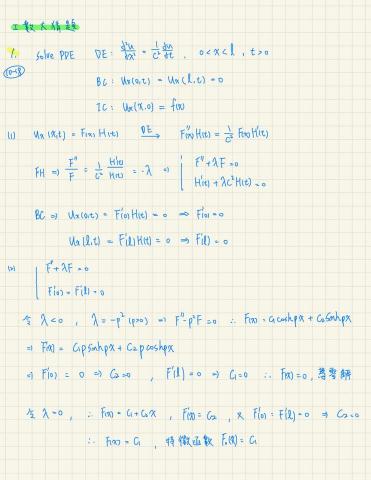 工數大猜題
1. solve PDE DE: d²u/dx² = 1/c² du/dt , 0<x<l , t>0
(10-18) BC: Ux(0,t) = Ux(l,t) = 0
IC: Ux(x,0) = f(x)
(1) Ux(x,t) = F(x)H(t) DE→ F''(x)H(t) = 1/c² F(x)H'(t)
FH ⇒ F''/F = 1/c² H'(t)/H(t) = -λ ⇒ { F''+λF=0
H'(t)+λc²H(t)=0
BC ⇒ Ux(0,t) = F'(0)H(t) = 0 ⇒ F'(0)=0
Ux(l,t) = F'(l)H(t) = 0 ⇒ F'(l)=0
(2) { F''+λF=0
F'(0)=F'(l)=0
令 λ<0 , λ=-p² (p>0) ⇒ F''-p²F=0 ∴ F(x)=c₁coshpx+c₂sinhpx
⇒ F'(x) = c₁psinhpx + c₂pcoshpx
⇒ F'(0) = 0 ⇒ c₂=0 , F'(l)=0 ⇒ c₁=0 ∴ F(x)=0, 為零解
令 λ=0 , ∴ F(x)=c₁+c₂x , F'(x)=c₂ , 又 F'(0)=F'(l)=0 ⇒ c₂=0
∴ F(x)=c₁ , 特徵函數 F₀(x)=c₁